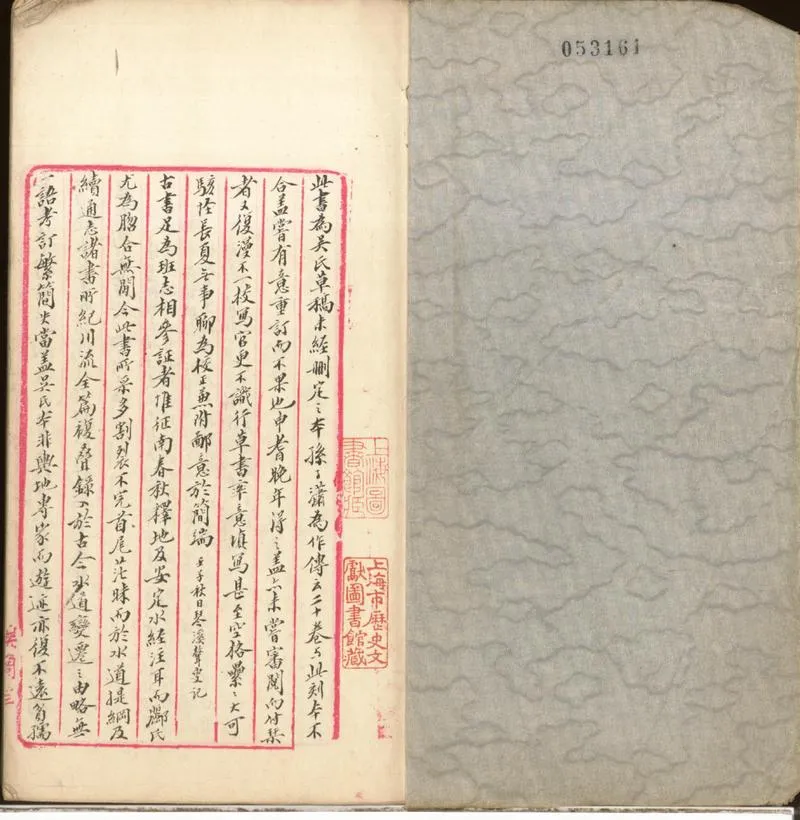 053161
此書為吳氏草稿未經刪定之本孫子瀟為作傳云二十卷与此刻本不
合盖嘗有意重訂而不果也申耆晚年得之盖亦未嘗審閱而付栞
者又復漫不一校寫官更不識行草書率意填寫甚至空格纍〻大可
駭怪長夏無事聊為校正兼附鄙意於簡端 壬子秋日琴溪聲堂記
古書足為班志相參証者惟征南春秋釋地及安定水經注耳而酈氏
尤為脗合無間今此書所采多割裂不完首尾茫昧而於水道提綱及
續通志諸書所紀川流全篇複疊錄入於古今水道變遷之由略無
一語考訂繁簡失當盖吳氏本非輿地專家而遊迹亦復不遠
上海圖
書館藏
上海市歷史文
獻圖書館藏